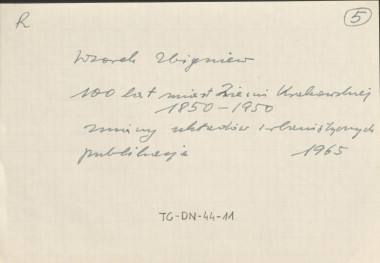 R
5
Wzorek Zbigniew
100 lat miast Ziemi Krakowskiej
1850-1950
zmiany układów urbanistycznych
publikacja 1965
TG-DN-44-11